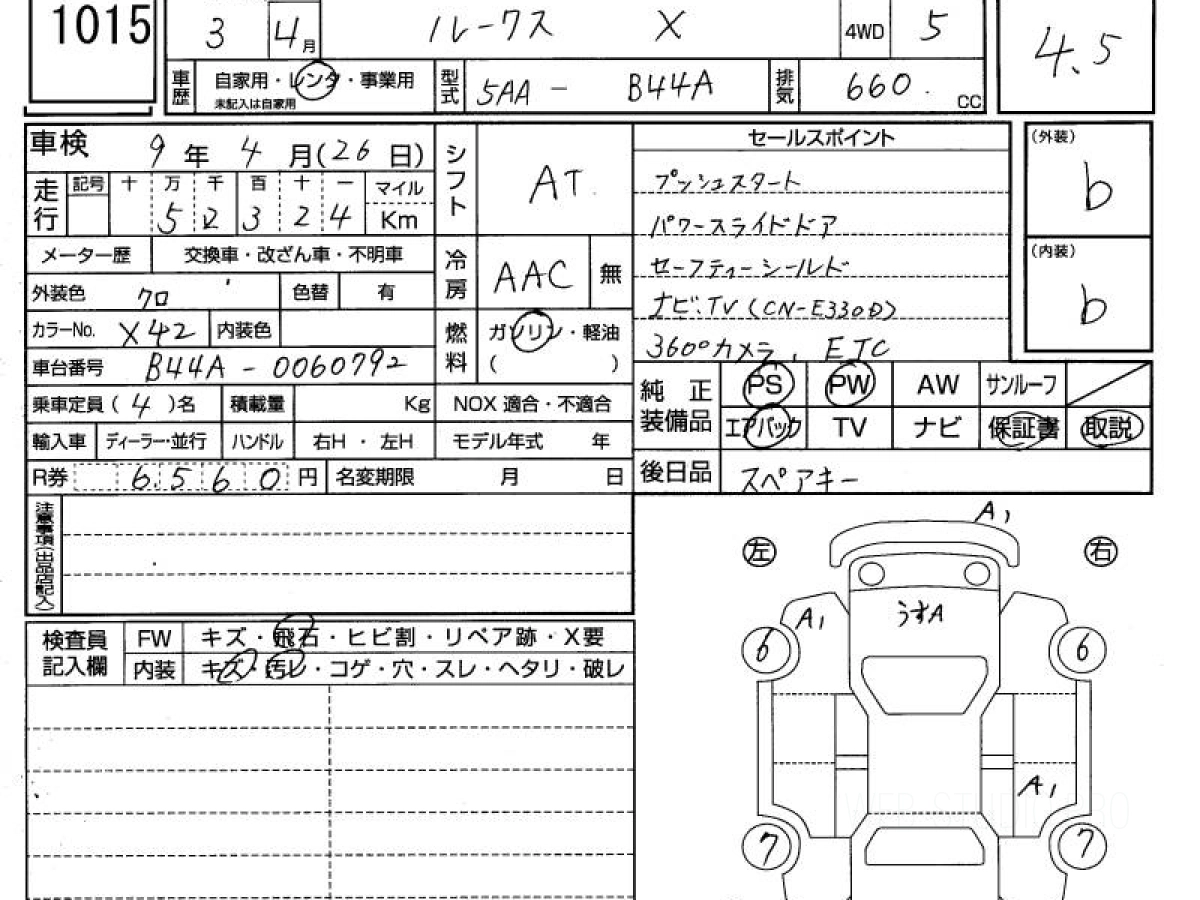 1015 3 4月 ルークス X 4WD 5 4.5
車歴 自家用・レンタ・事業用 未記入は自家用 型式 5AA - B44A 排気 660. CC
車検 9年 4月(26日) シフト AT. セールスポイント (外装) b
走行 記号 十 万 千 百 十 一 マイル プッシュスタート
5 2 3 2 4 Km パワースライドドア
メーター歴 交換車・改ざん車・不明車 冷房 AAC 無 セーフティーシールド (内装) b
外装色 クロ 色替 有 ナビ.TV (CN-E330D)
カラーNo. X42 内装色 燃料 ガソリン・軽油 ( ) 360°カメラ, ETC
車台番号 B44A - 0060792
乗車定員 ( 4 )名 積載量 Kg NOX 適合・不適合 純正装備品 PS PW AW サンルーフ
輸入車 ディーラー・並行 ハンドル 右H・左H モデル年式 年 エアバック TV ナビ 保証書 取説
R券 6.560円 名変期限 月 日 後日品 スペアキー
注意事項(出品店記入)
検査員記入欄 FW キズ・飛石・ヒビ割・リペア跡・X要
内装 キズ・汚レ・コゲ・穴・スレ・ヘタリ・破レ
A1
左 右
A1 うすA
6 6
A1
7 7